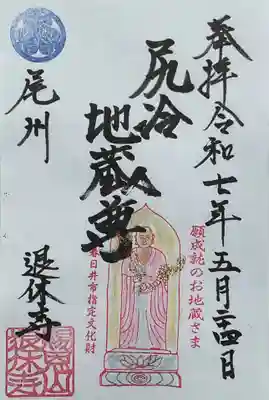 奉拝令和七年五月二四日
願成就のお地蔵さま
尻冷
地蔵尊
春日井市指定文化財
尾州
退休寺